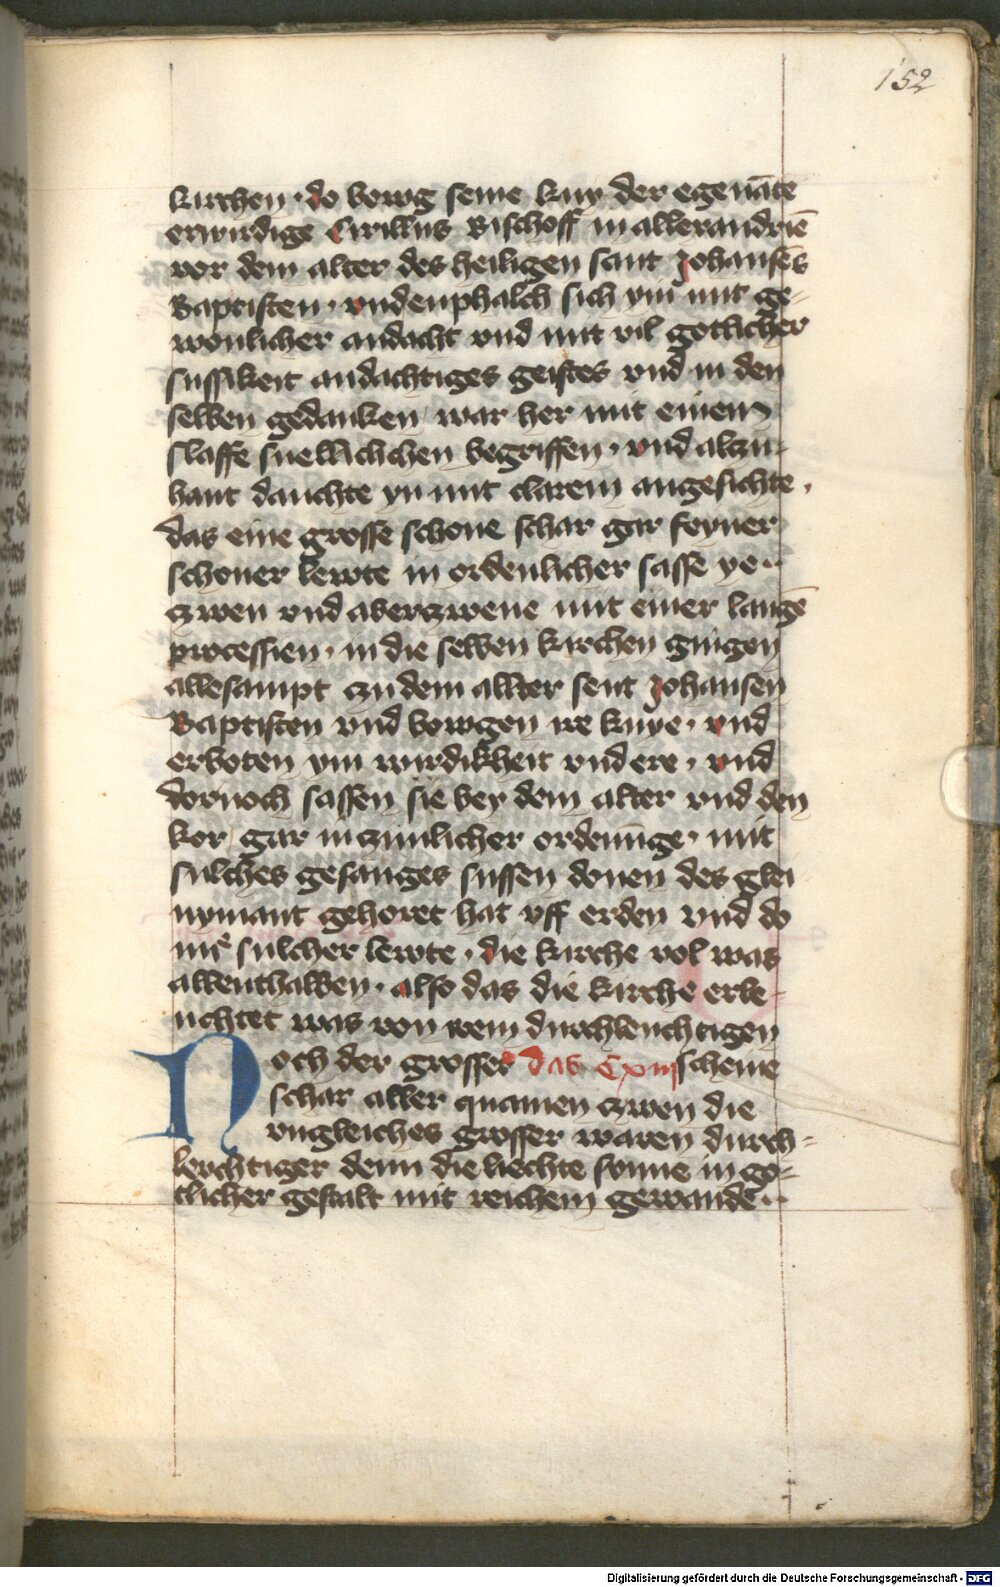 152
kirchen · do bowg seine knÿ der egenāte
erwirdige Cirillus Bischoff in allexandriē
vor dem alter des heiligen sant Johansēs
Baptisten · vnd enphalch sich ym mit ge-
wonlicher andacht vnd mit vil gotlicher
sussikeit andachtiges geistes vnd in den
selben gedanken war her mit einem
slaffe snellichchen begriffen · vnd alczu-
hant dauchte yn mit clarem angesichte ·
das eine grosse schone schar gar feyner
schoner lewte in ordenlicher sasse ye ·
czwen vnd aberczwene mit einer langē
processien · in die selben kirchen gingen
allesampt czu dem allter sent Johansen
Baptisten vnd bowgen ire knye · vnd
erboten ym wirdikheit vnd ere · vnd
dornoch sassen sie bey dem alter vnd den
kor gar in czimlicher ordenūge · mit
sulches gesanges sussen donen des glei
nymant gehoret hat vff erden vnd do
mit sulcher lewte · die kirche vol was
allenthalben · also das die kirche erle-
uchtet was von irem durchleuchtigen
Noch der grosser das Cxiij scheine
schar aller quamen czwen die
vngleiches grosser waren durch-
lerchtiger denn die liechte sonne in go-
tlicher gestalt mit reichem gewande ·
Digitalisierung gefördert durch die Deutsche Forschungsgemeinschaft - DFG